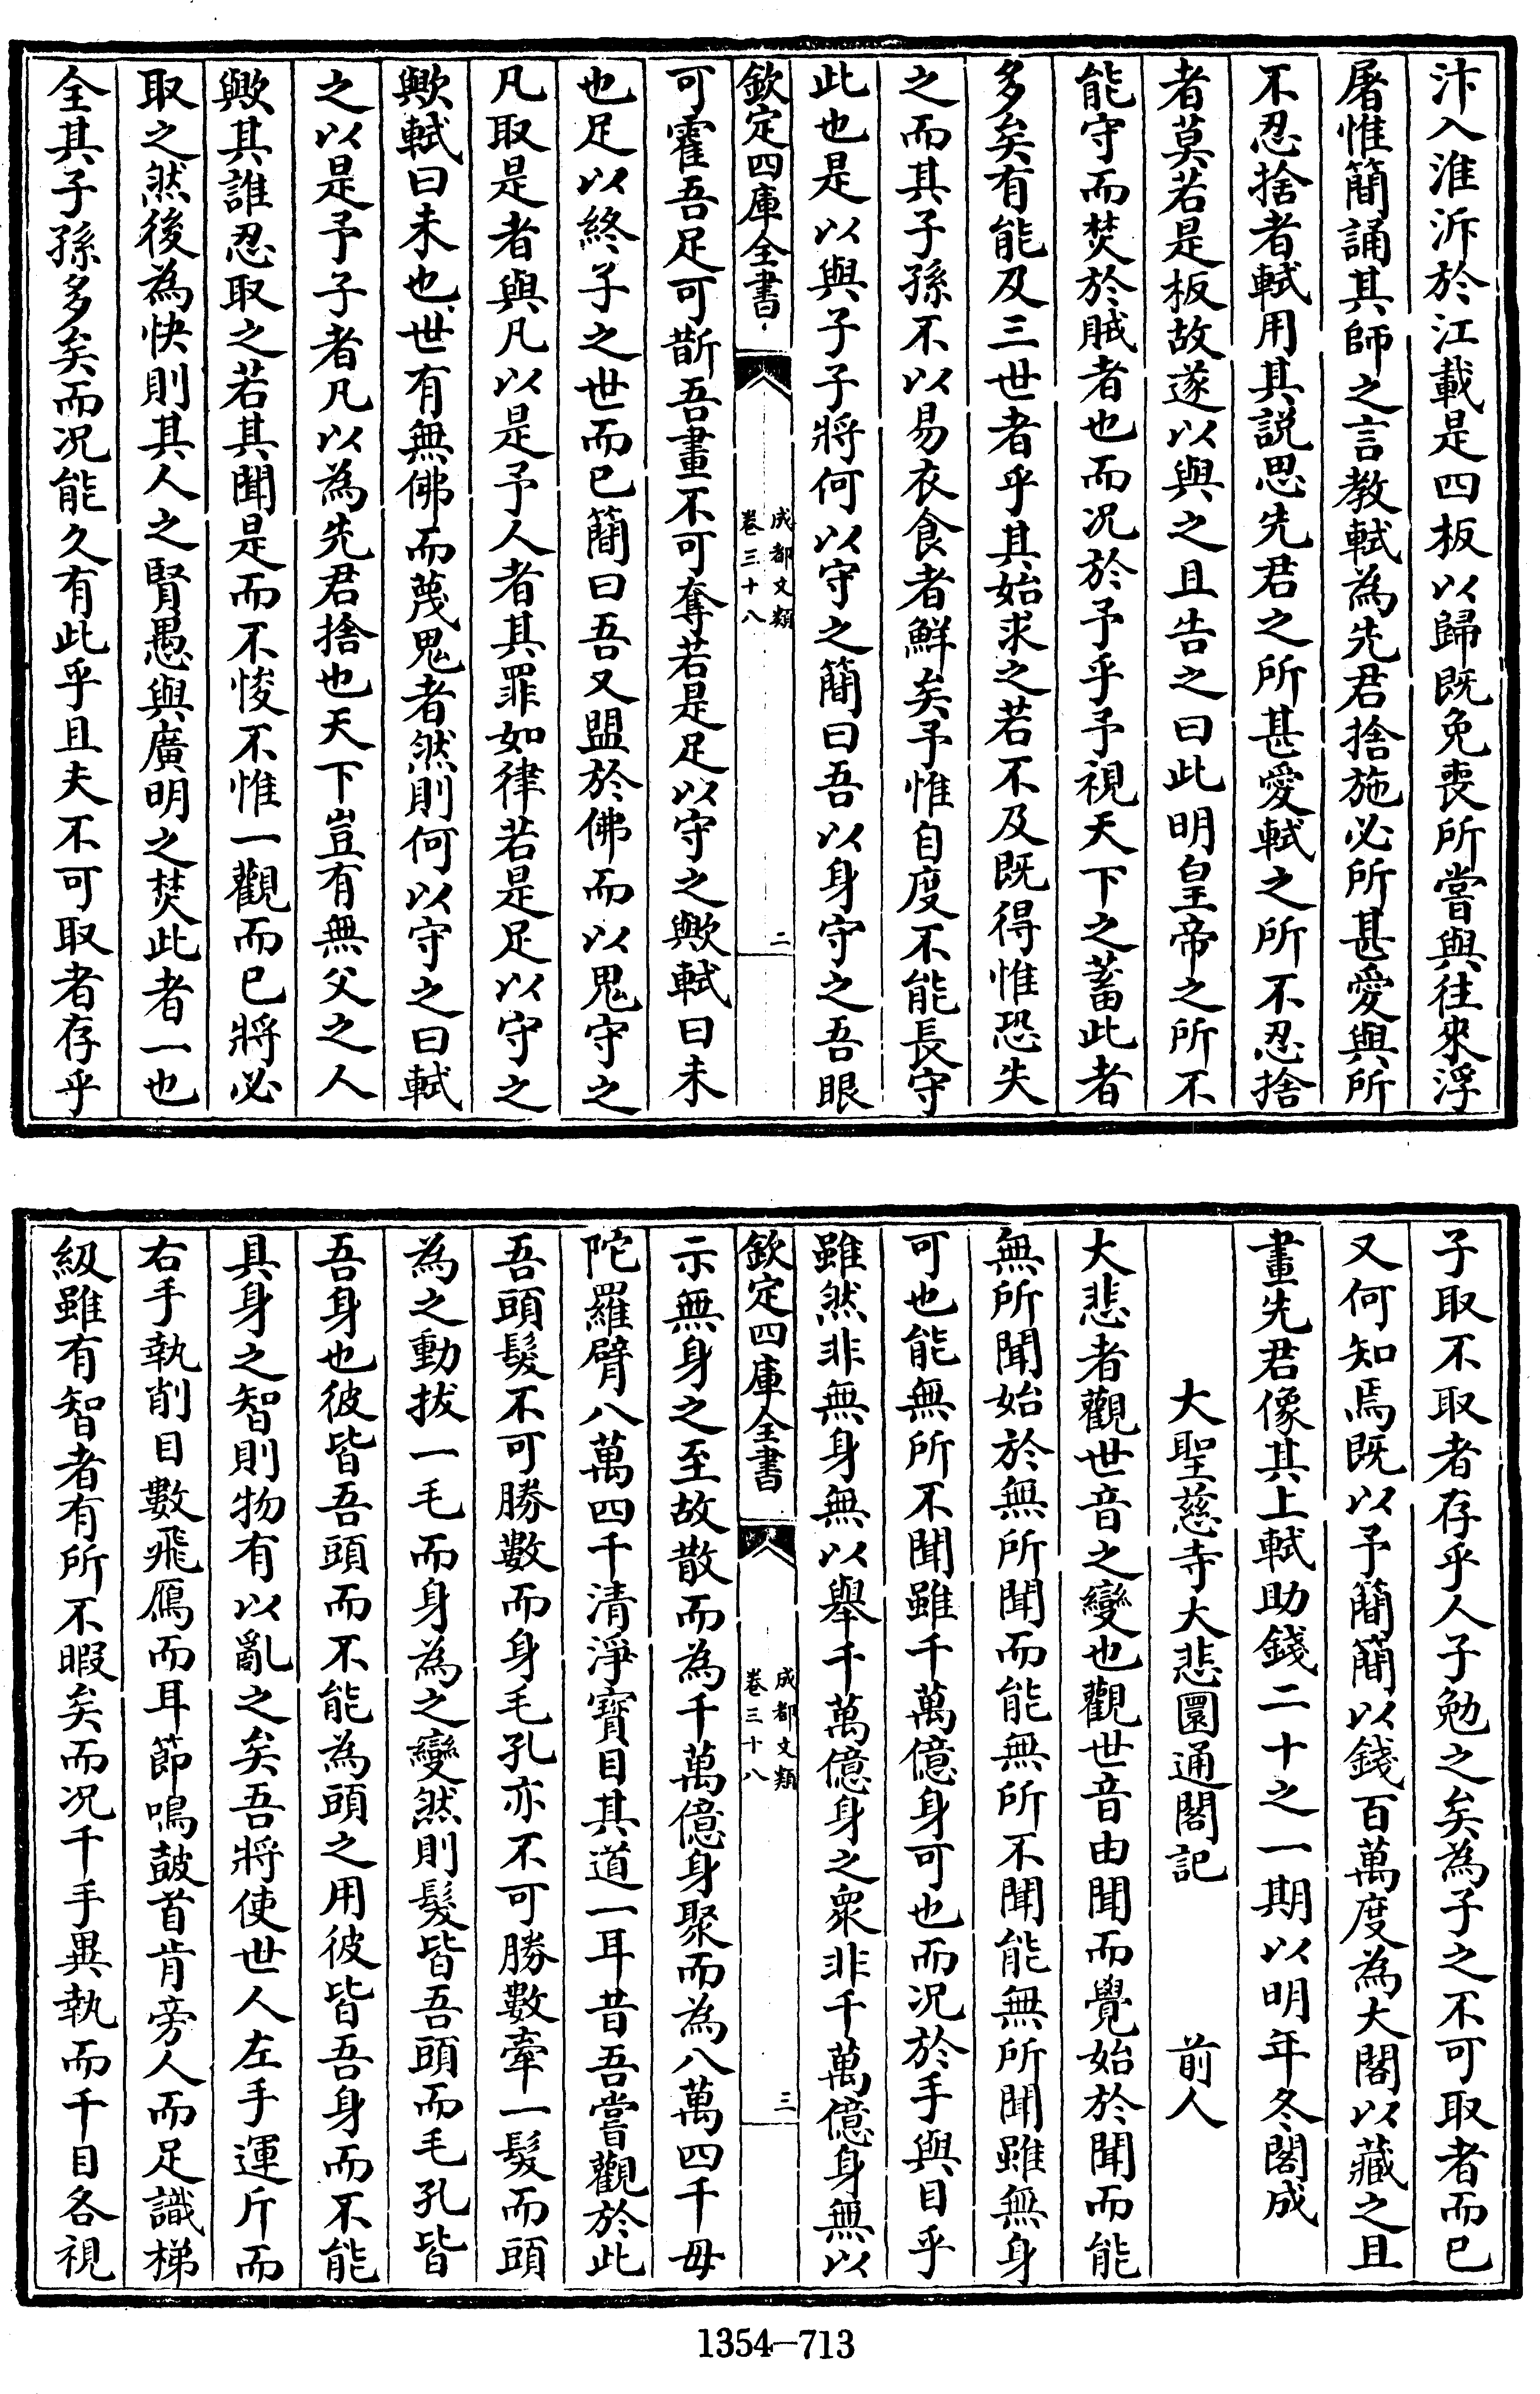 汴入淮泝於江載是四板以歸既免喪所嘗與往來浮
屠惟簡誦其師之言教軾為先君捨施必所甚愛與所
不忍捨者軾用其説思先君之所甚愛軾之所不忍捨
者莫若是板故遂以與之且告之曰此明皇帝之所不
能守而焚於賊者也而况於予乎予視天下之蓄此者
多矣有能及三世者乎其始求之若不及既得惟恐失
之而其子孫不以易衣食者鮮矣予惟自度不能長守
此也是以與子子將何以守之簡曰吾以身守之吾眼
欽定四庫全書
成都文類
卷三十八
二
可霍吾足可斮吾畫不可奪若是足以守之歟軾曰未
也足以終子之世而已簡曰吾又盟於佛而以鬼守之
凡取是者與凡以是予人者其罪如律若是足以守之
歟軾曰未也世有無佛而蔑鬼者然則何以守之曰軾
之以是予子者凡以為先君捨也天下豈有無父之人
歟其誰忍取之若其聞是而不悛不惟一觀而已將必
取之然後為快則其人之賢愚與廣明之焚此者一也
全其子孫多矣而况能久有此乎且夫不可取者存乎
子取不取者存乎人子勉之矣為子之不可取者而已
又何知焉既以予簡簡以錢百萬度為大閣以藏之且
畫先君像其上軾助錢二十之一期以明年冬閣成
大聖慈寺大悲圜通閣記　前人
大悲者觀世音之變也觀世音由聞而覺始於聞而能
無所聞始於無所聞而能無所不聞能無所聞雖無身
可也能無所不聞雖千萬億身可也而况於手與目乎
雖然非無身無以舉千萬億身之衆非千萬億身無以
欽定四庫全書
成都文類
卷三十八
三
示無身之至故散而為千萬億身聚而為八萬四千毋
陀羅臂八萬四千清淨寳目其道一耳昔吾嘗觀於此
吾頭髮不可勝數而身毛孔亦不可勝數牽一髮而頭
為之動拔一毛而身為之變然則髮皆吾頭而毛孔皆
吾身也彼皆吾頭而不能為頭之用彼皆吾身而不能
具身之智則物有以亂之矣吾將使世人左手運斤而
右手執削目數飛鴈而耳節鳴鼓首肯旁人而足識梯
級雖有智者有所不暇矣而况千手異執而千目各視
1354-713